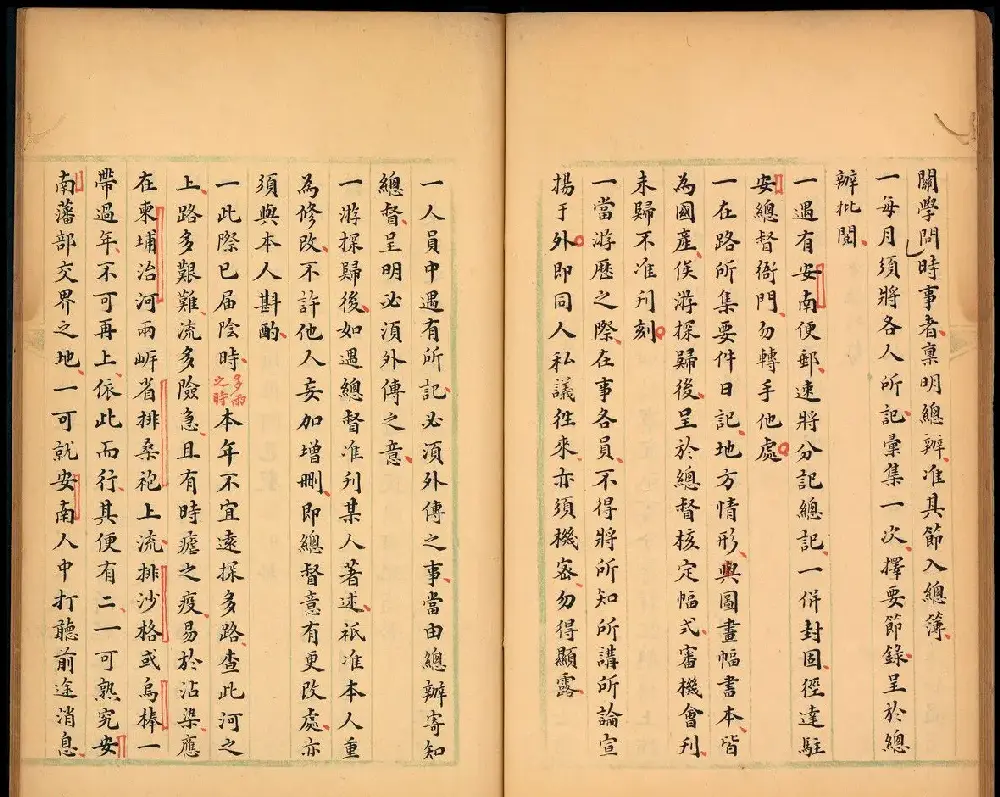 關學問時事者稟明總辦准其節入總簿
一每月須將各人所記彙集一次擇要節錄呈於總
辦批閱
一遇有安南便郵速將分記總記一併封固徑達駐
安總督衙門勿轉手他處
一在路所集要件日記地方情形輿圖畫幅書本皆
為國產俟游探歸後呈於總督核定幅式審機會刋
未歸不准刋刻
一當游歷之際在事各員不得將所知所講所論宣
揚于外即同人私議徃來亦須機宻勿得顯露
一人員中遇有所記必須外傳之事當由總辦寄知
總督呈明必須外傳之意
一游探歸後如遇總督准刋某人著述祇准本人重
為修改不許他人妄加增刪即總督意有更改處亦
須與本人斟酌
一此際已届陰時多雨之時本年不宜遠探多路查此河之
上路多艱難流多險急且有時瘧之疫易於沾染應
在柬埔治河兩岍省排桑祂上流排沙格或烏棒一
帶過年不可再上依此而行其便有二一可熟究安
南藩部交界之地一可就安南人中打聽前途消息